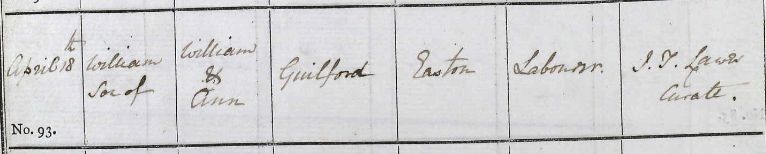 April 18th
William
Son of
William
&
Ann
Guilford
Easton
Labourer.
J. T. Lawes
Curate.
No. 93.